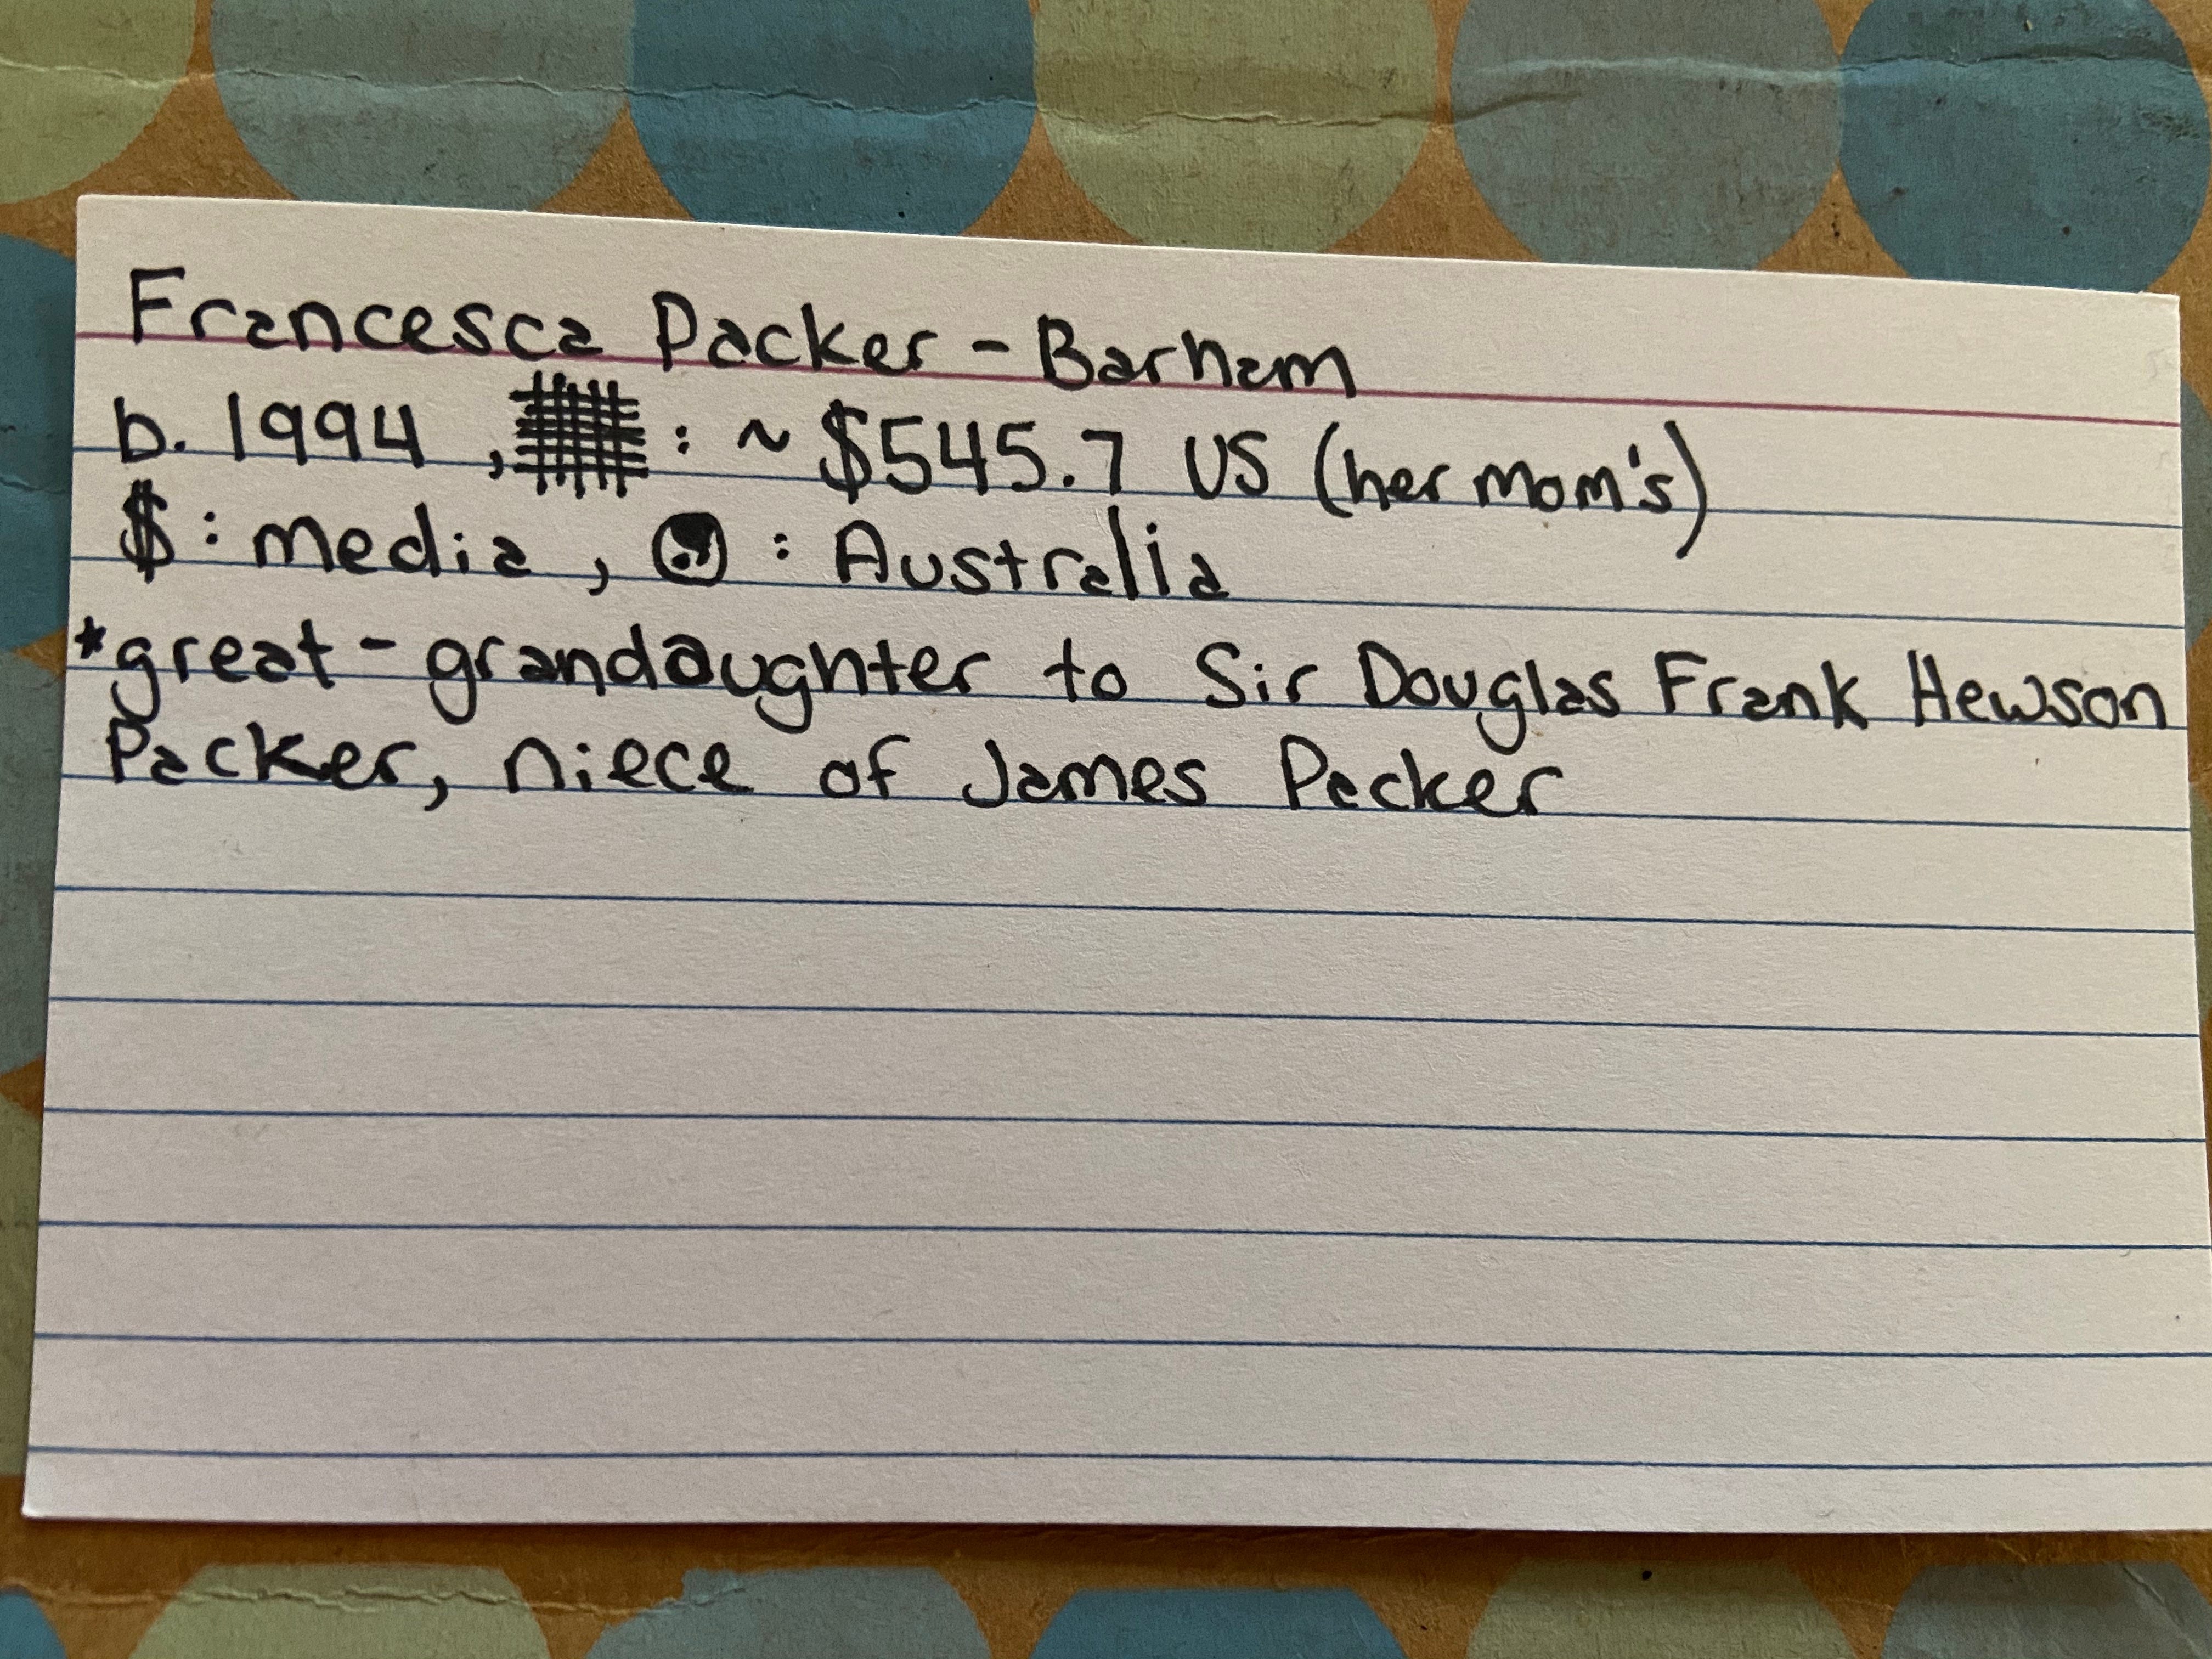 Francesca Packer-Barham
b. 1994, : ~ $545.7 US (her mom's)
$: media, : Australia
*great-grandaughter to Sir Douglas Frank Hewson
Packer, niece of James Packer